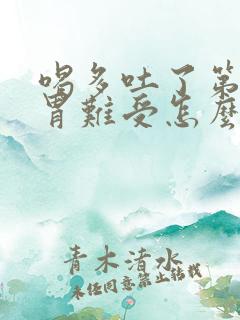 喝多吐了第
胃難受怎麼
青木清水
未经同意禁止转载